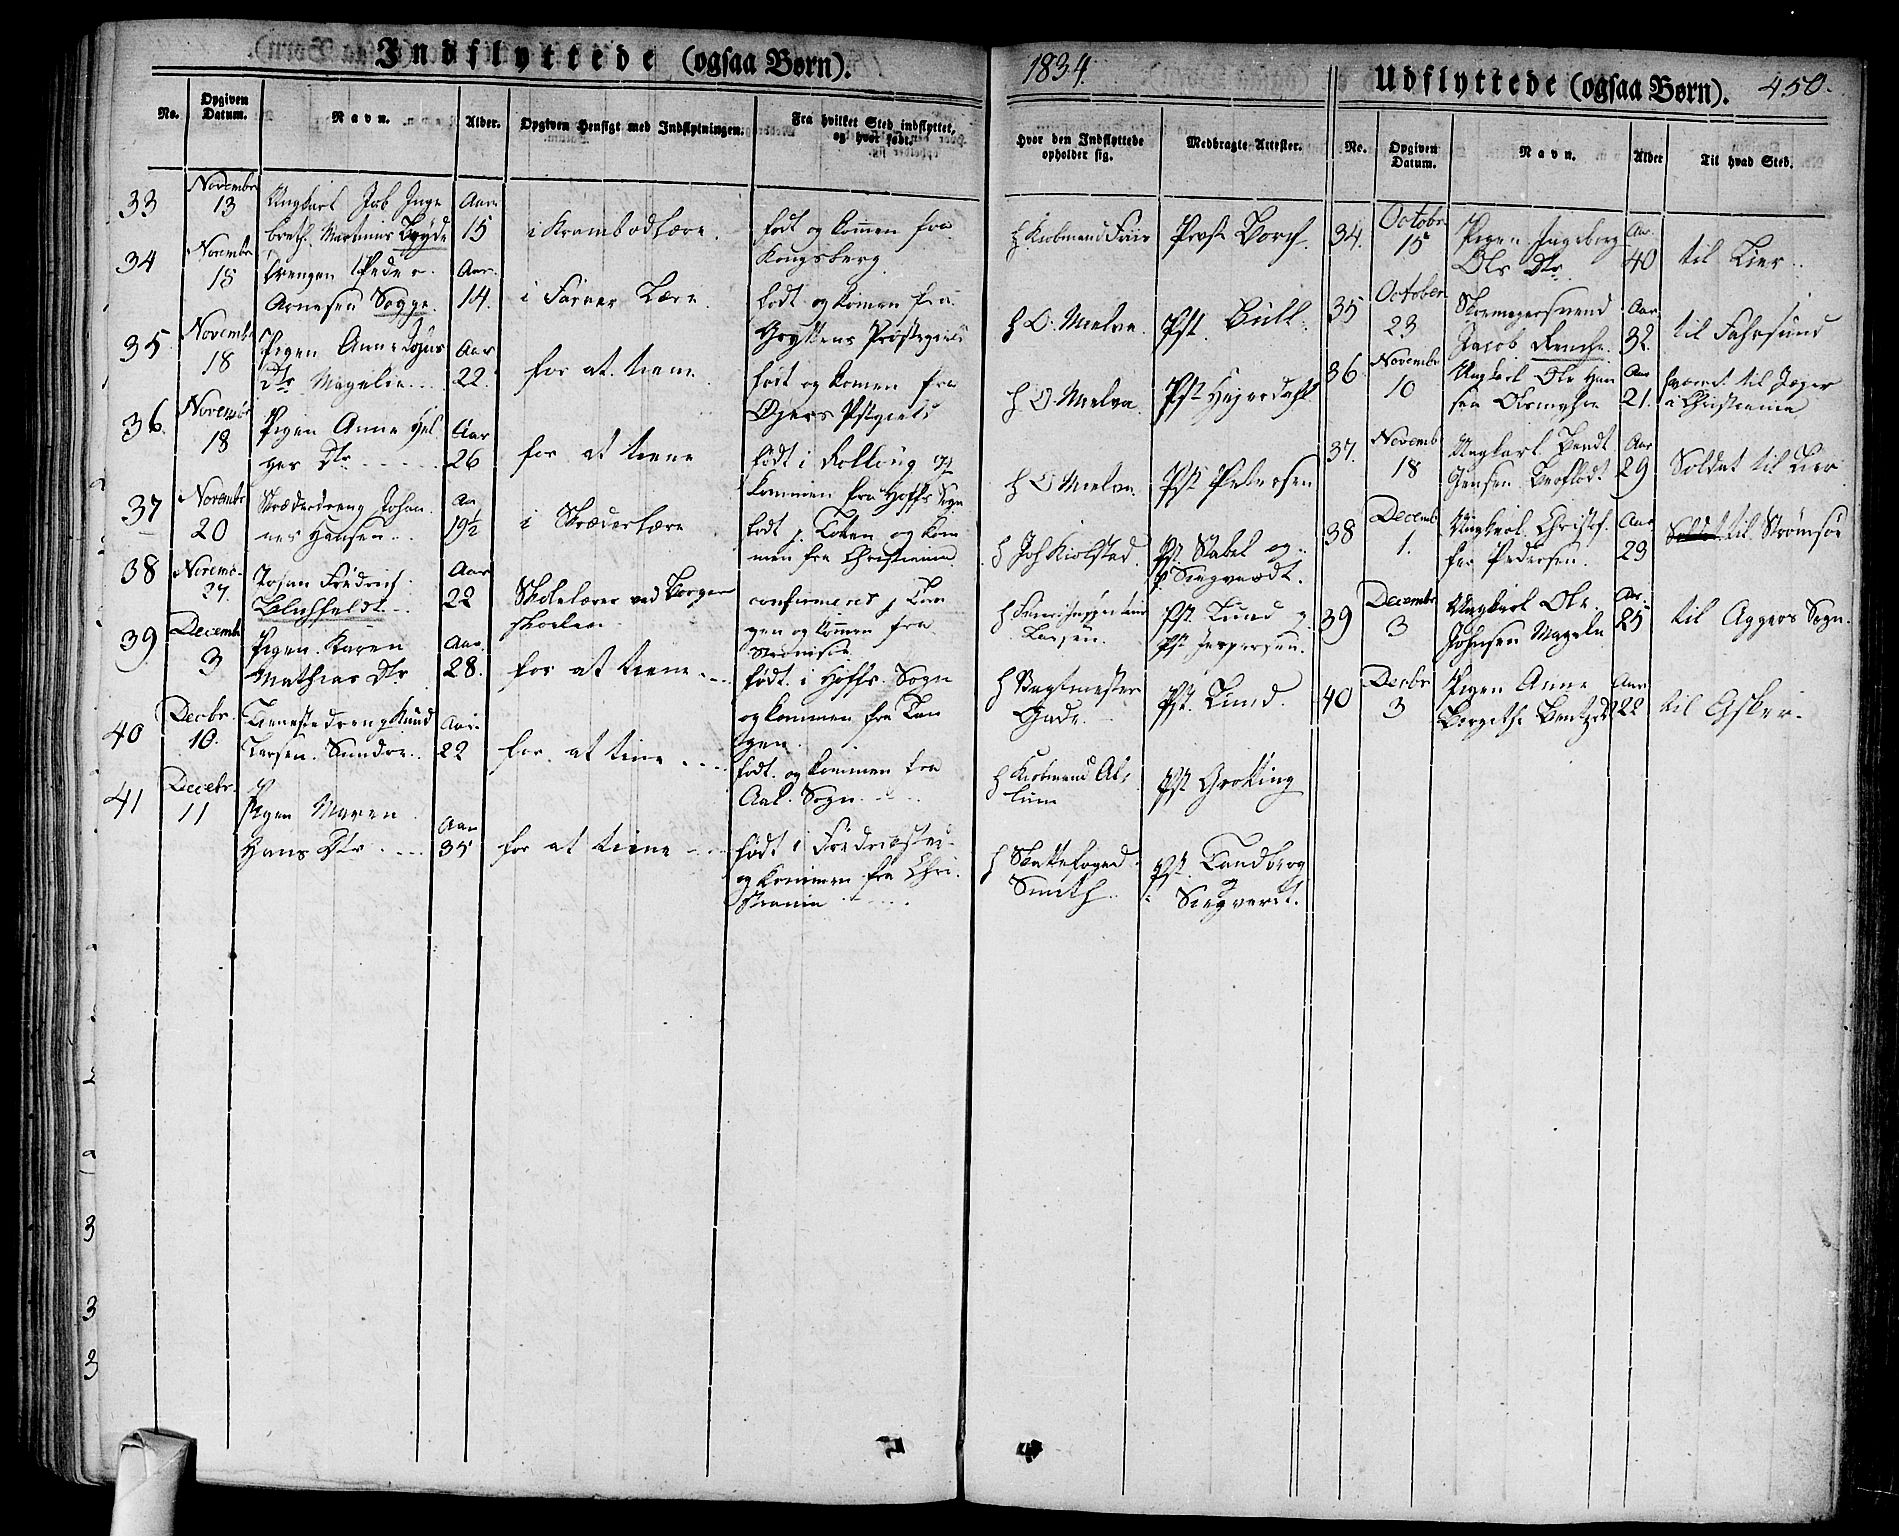 Indflyttede (ogsaa Børn).
No.
Opgiven Datum.
Navn.
Alder.
Opgiven Hensigt med Indflytningen.
Fra hvilket Sted indflyttet, og hvor født.
1834.
Hvor den Indflyttede opholder sig.
Medbragte Attester.
33
Novembr 13
Ungkarl Job Inge
breth. Martinus Bryde
Aar 15
i Krambodlære.
født og kommen fra
Kongsberg.
h Kiøbmand Friis
Provst Borch.
34
Novembr 18
Drengen Peder
Arnesen Sogge.
Aar. 14.
i Farver Lære.
født og komen fra
Gryttens Præstegield
h O. Mælva.
Pst. Bull.
35
Novembr 18
Pigen Anne
Dtr Magelie
Aar 22.
for at tiene
født og komen fra
Øyers Pstgield
h O. Mælva.
Pst Heyerdahl
36.
Novembr 18
Pigen Anne Hel-
ges Dtr
Aar 26
for at tiene
født i Rolloug og
kommen fra Hoffs Sogn
h O Mælva
Pst Petersen
37
Novembr 20
Skrædderdreng Johan
nes Hansen
Aar 19½
i Skræderlære
født i Toten og kom
men fra Christiania
h Joh Kiølstad.
Pst Stabel og
Pst Siegvardt.
38
Novembr 27.
Johan Fredrich
Blichfeldt
Aar 22
Skolelærer ved Borger
skoelen
confirmeret i Tan
gen og komen fra
Strømsøe
Larsen.
Pst. Lund og
Pst Jespersen.
39
Decembr 3
Pigen Karen
Mathias Dtr
Aar. 28.
for at tiene
født i Hoffs Sogn
og kommen fra Tan
gen.
h Vagtmester
Gade
Pst. Lund.
40
Decbr. 10.
Tienestedreng Knud
Larsen Sundre
Aar. 22
for at tiene
født og kommen fra
Aal. Sogn
h Kiøbmand Al-
lum
Pst Grøtting
41
Decebr. 11
Pigen Maren
Hans Dtr
Aar 35
for at tiene
født i Fredricstad
og kommen fra Chri-
stiania
h Skattefoged
Smith.
Pst. Tandberg
og
Siegvardt.
Udflyttede (ogsaa Børn). 450.
No.
Opgiven Datum.
Navn.
Alder
Til hvad Sted.
34.
Octobr 15
Pigen Ingeborg
Ols Dtr
Aar. 40
til Lier
35
October 23
Skomagersvend
Jacob Rench
Aar 32.
til Fahrsund
36
Novembr 10
Ungkarl Ole Han
sen
Aar 21.
til Jæger
i Christiania
37.
Novembr 18
Ungkarl Bendt
Jensen
Aar 29
Soldat til Lier
38
Decembr 1.
Ungkarl Christof-
fer Pedersen.
Aar 23
Soldat til Strømsøe
39
Decembr 3
Ungkarl Ole
Johnsen Magelie
Aar. 25
til Aggers Sogn.
40
Decbr 3
Pigen Anne
Aar 22
til Asker.